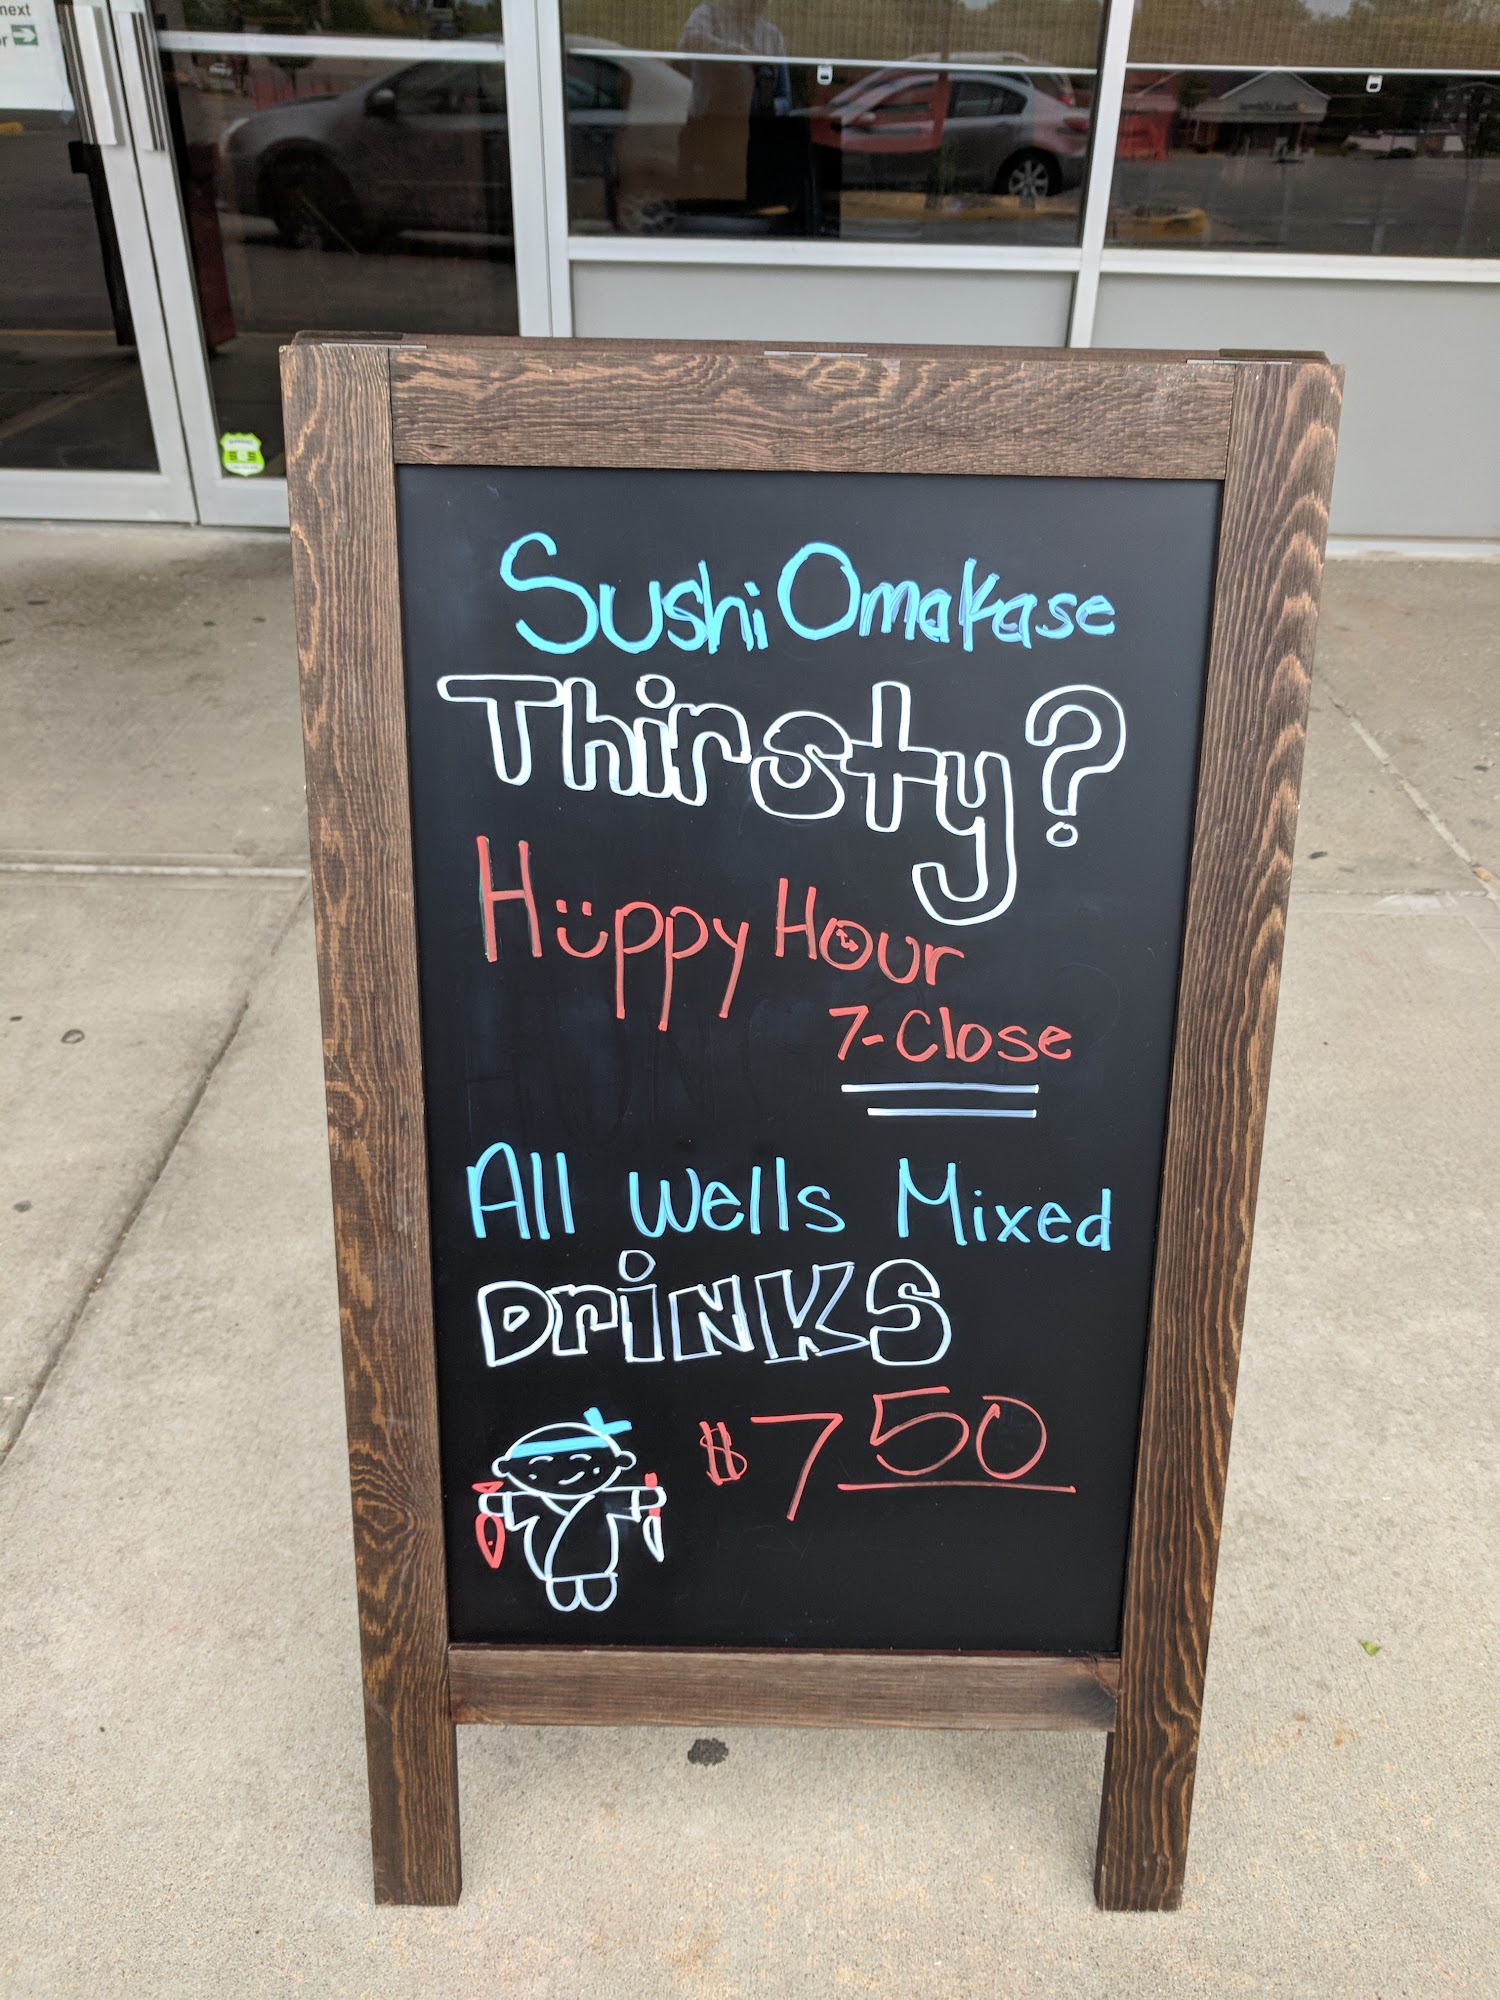 next
Sushi Omakase
Thirsty?
Happy Hour
7-Close
All Wells Mixed
DriNKS
$7 50